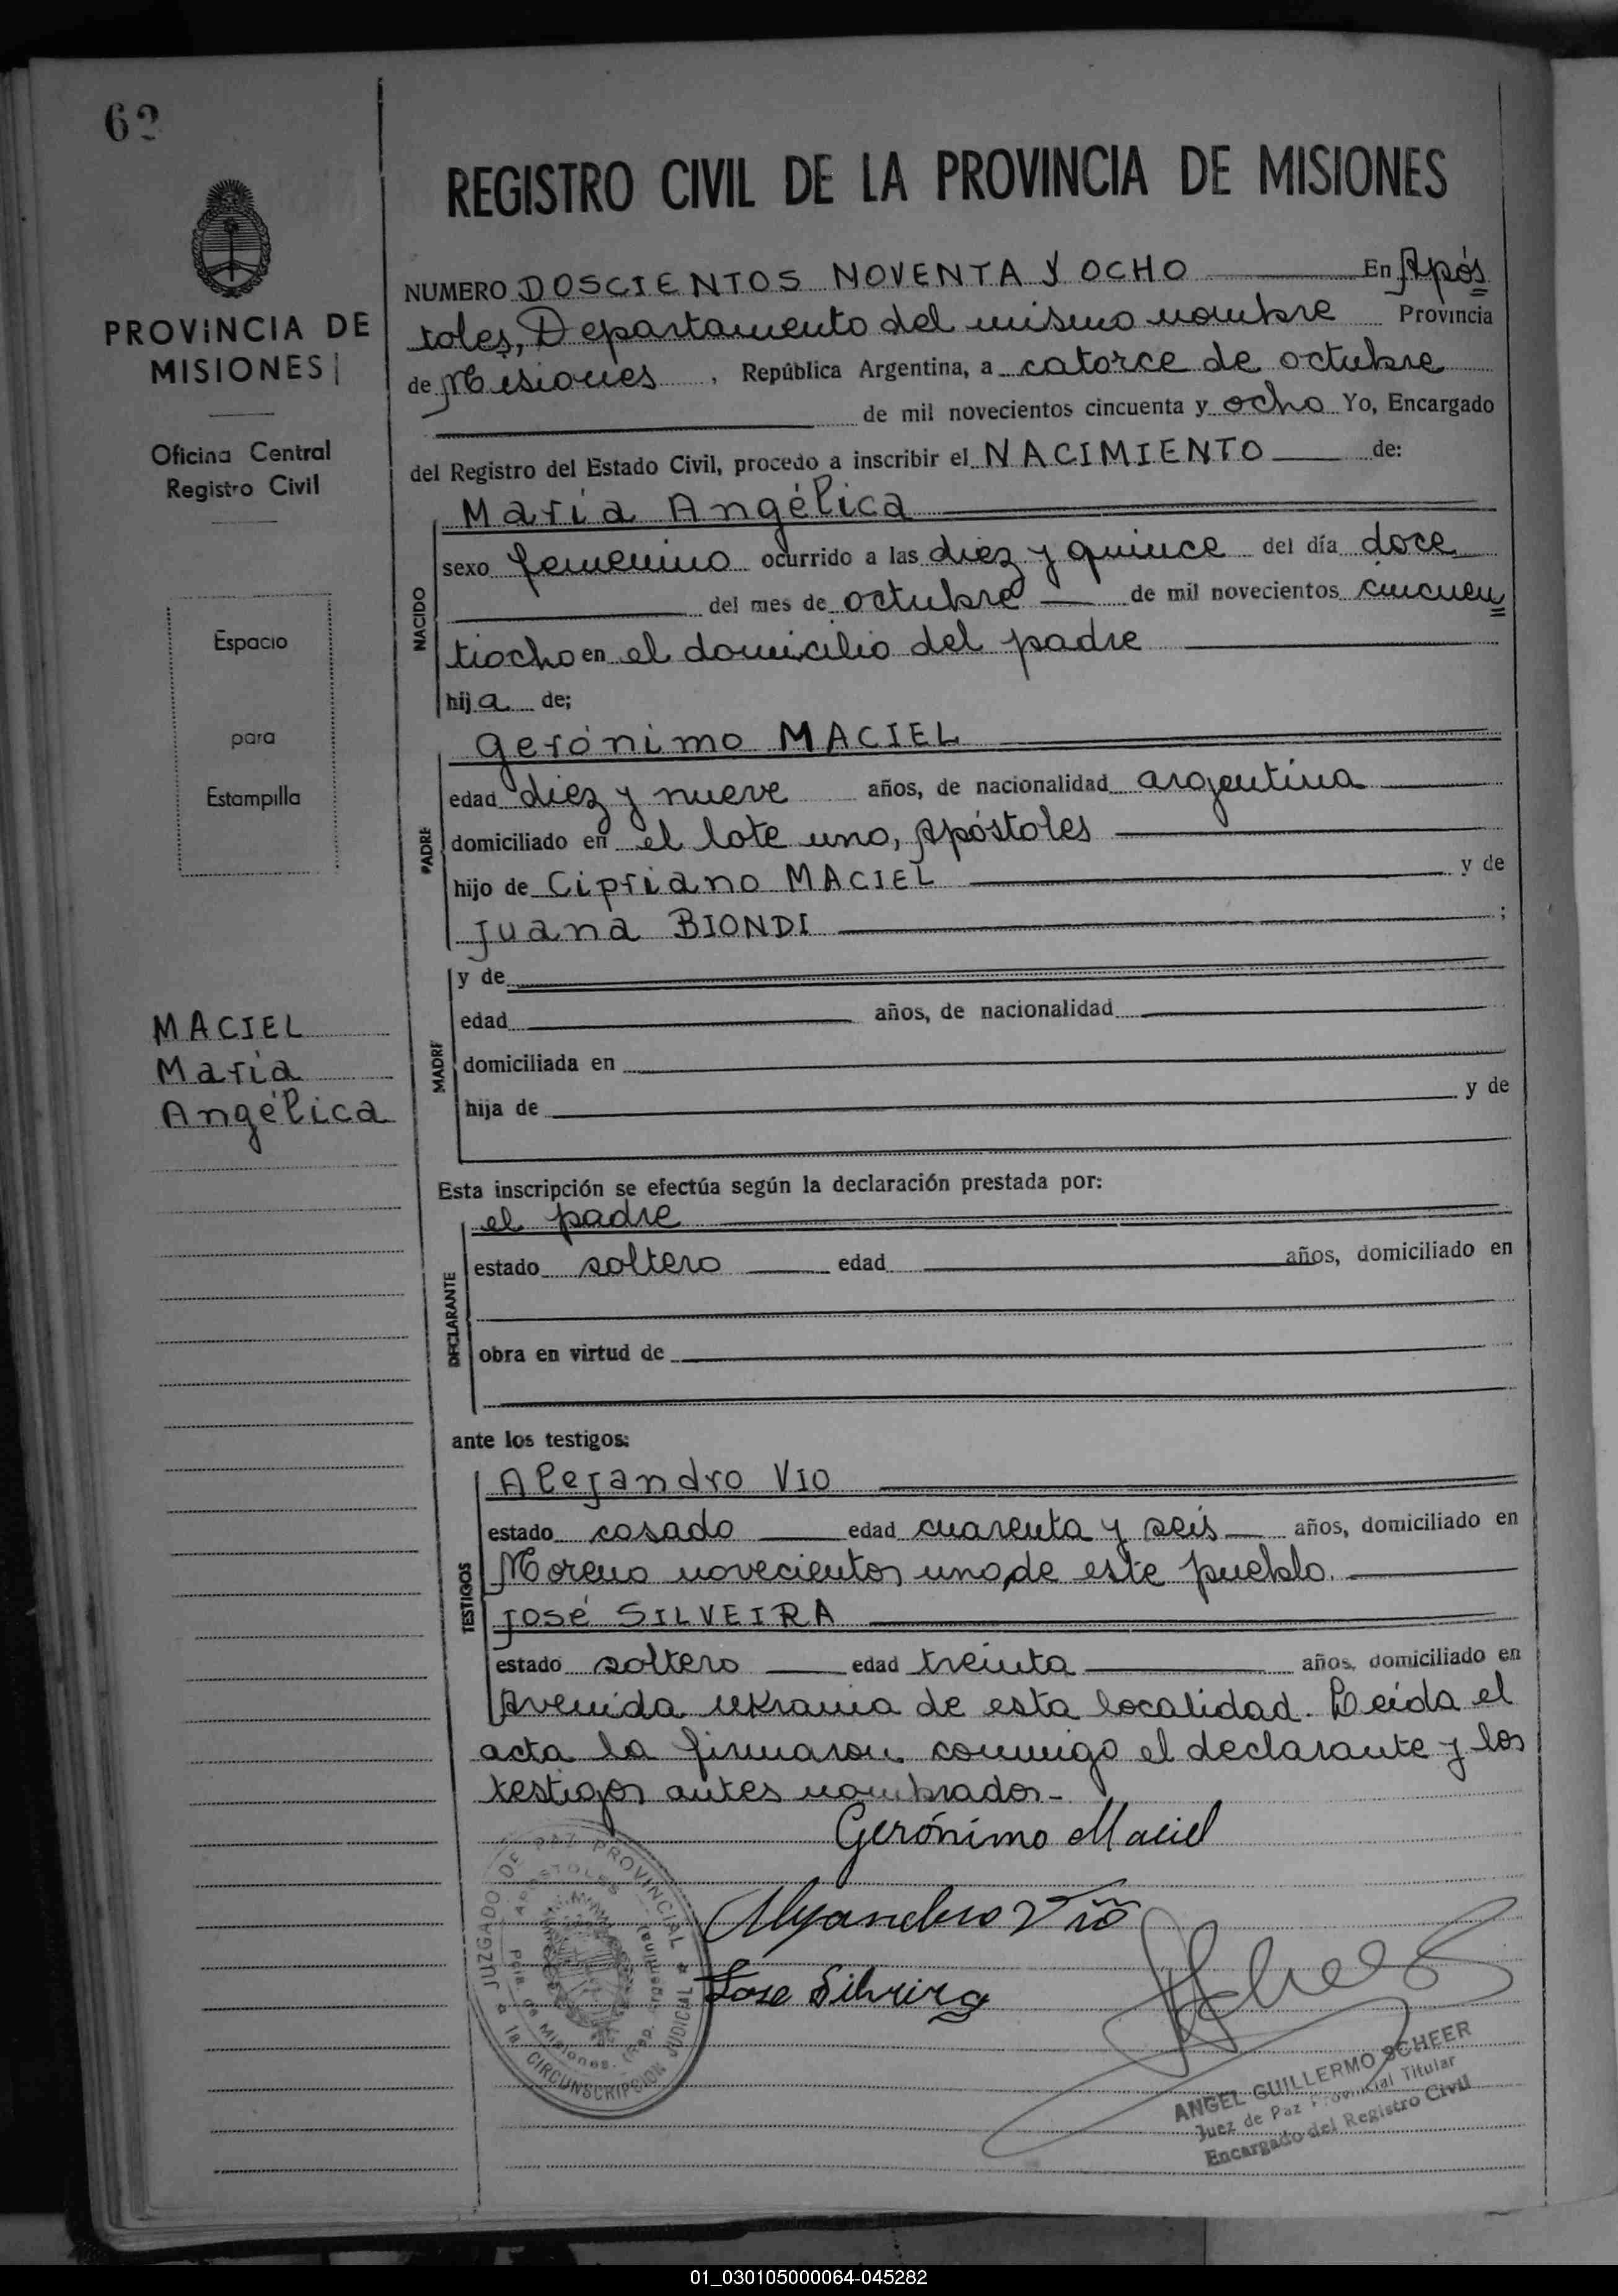 62
PROVINCIA DE
MISIONES
Oficina Central
Registro Civil
Espacio
para
Estampilla
MACIEL
María
Angélica
REGISTRO CIVIL DE LA PROVINCIA DE MISIONES
NUMERO DOSCIENTOS NOVENTA Y OCHO En Após
toles, Departamento del mismo nombre Provincia
de Misiones, República Argentina, a catorce de octubre
de mil novecientos cincuenta y ocho Yo, Encargado
del Registro del Estado Civil, procedo a inscribir el NACIMIENTO de:
NACIDO
María Angélica
sexo femenino ocurrido a las diez y quince del día doce
del mes de octubre de mil novecientos cincuen
tiocho en el domicilio del padre
hija de;
PADRE
Gerónimo MACIEL
edad diez y nueve años, de nacionalidad argentina
domiciliado en el lote uno, Apóstoles
hijo de Cipriano MACIEL y de
Juana BIONDI ;
MADRE
y de
edad años, de nacionalidad
domiciliada en
hija de y de
Esta inscripción se efectúa según la declaración prestada por:
DECLARANTE
el padre
estado soltero edad años, domiciliado en
obra en virtud de
ante los testigos:
TESTIGOS
Alejandro VIO
estado casado edad cuarenta y seis años, domiciliado en
Moreno novecientos uno, de este pueblo.
José SILVEIRA
estado soltero edad treinta años, domiciliado en
Avenida Ukrania de esta localidad. Leída el
acta la firmaron conmigo el declarante y los
testigos antes nombrados-
Gerónimo Maciel
Alejandro Vio
Jose Silveira
JUZGADO DE PAZ PROVINCIAL
APOSTOLES
Pcia. de Misiones. (Rep. Argentina)
1a. CIRCUNSCRIPCION JUDICIAL
ANGEL GUILLERMO SCHEER
Juez de Paz Provincial Titular
Encargado del Registro Civil
01_030105000064-045282